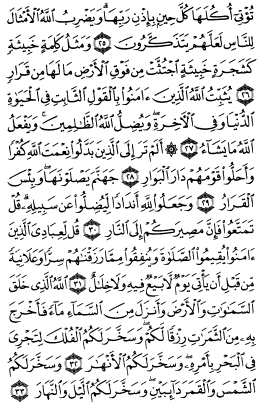 تُؤْتِىٓ أُكُلَهَا كُلَّ حِينٍۭ بِإِذْنِ رَبِّهَا ۗ وَيَضْرِبُ ٱللَّهُ ٱلْأَمْثَالَ
لِلنَّاسِ لَعَلَّهُمْ يَتَذَكَّرُونَ ٢٥ وَمَثَلُ كَلِمَةٍ خَبِيثَةٍ
كَشَجَرَةٍ خَبِيثَةٍ ٱجْتُثَّتْ مِن فَوْقِ ٱلْأَرْضِ مَا لَهَا مِن قَرَارٍ
٢٦ يُثَبِّتُ ٱللَّهُ ٱلَّذِينَ ءَامَنُوا۟ بِٱلْقَوْلِ ٱلثَّابِتِ فِى ٱلْحَيَوٰةِ
ٱلدُّنْيَا وَفِى ٱلْـَٔاخِرَةِ ۖ وَيُضِلُّ ٱللَّهُ ٱلظَّـٰلِمِينَ ۚ وَيَفْعَلُ
ٱللَّهُ مَا يَشَآءُ ٢٧ ۞ أَلَمْ تَرَ إِلَى ٱلَّذِينَ بَدَّلُوا۟ نِعْمَتَ ٱللَّهِ كُفْرًا
وَأَحَلُّوا۟ قَوْمَهُمْ دَارَ ٱلْبَوَارِ ٢٨ جَهَنَّمَ يَصْلَوْنَهَا ۖ وَبِئْسَ
ٱلْقَرَارُ ٢٩ وَجَعَلُوا۟ لِلَّهِ أَندَادًا لِّيُضِلُّوا۟ عَن سَبِيلِهِۦ ۗ قُلْ
تَمَتَّعُوا۟ فَإِنَّ مَصِيرَكُمْ إِلَى ٱلنَّارِ ٣٠ قُل لِّعِبَادِىَ ٱلَّذِينَ
ءَامَنُوا۟ يُقِيمُوا۟ ٱلصَّلَوٰةَ وَيُنفِقُوا۟ مِمَّا رَزَقْنَـٰهُمْ سِرًّا وَعَلَانِيَةً
مِّن قَبْلِ أَن يَأْتِىَ يَوْمٌ لَّا بَيْعٌ فِيهِ وَلَا خِلَـٰلٌ ٣١ ٱللَّهُ ٱلَّذِى خَلَقَ
ٱلسَّمَـٰوَٰتِ وَٱلْأَرْضَ وَأَنزَلَ مِنَ ٱلسَّمَآءِ مَآءً فَأَخْرَجَ
بِهِۦ مِنَ ٱلثَّمَرَٰتِ رِزْقًا لَّكُمْ ۖ وَسَخَّرَ لَكُمُ ٱلْفُلْكَ لِتَجْرِىَ
فِى ٱلْبَحْرِ بِأَمْرِهِۦ ۖ وَسَخَّرَ لَكُمُ ٱلْأَنْهَـٰرَ ٣٢ وَسَخَّرَ لَكُمُ
ٱلشَّمْسَ وَٱلْقَمَرَ دَآئِبَيْنِ ۖ وَسَخَّرَ لَكُمُ ٱلَّيْلَ وَٱلنَّهَارَ ٣٣